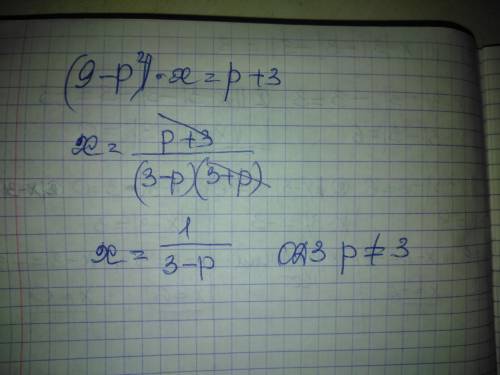 (9-p²)·x=p+3
x= p+3 / (3-p)(3+p)
x= 1 / 3-p ОДЗ p≠3